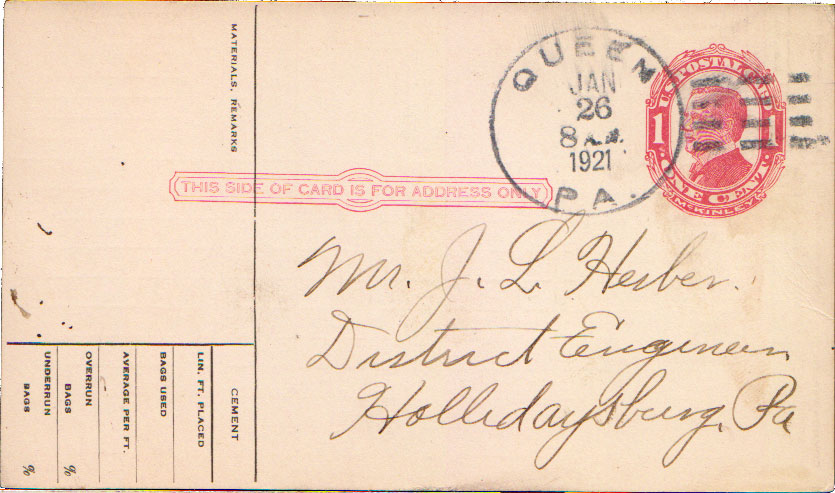 MATERIALS, REMARKS
QUEEN
JAN
26
8 A.M.
1921
PA.
U.S. POSTAL CARD
1 1
ONE CENT
McKINLEY
THIS SIDE OF CARD IS FOR ADDRESS ONLY
Mr. J. L. Herber.
District Engineer
Hollidaysburg, Pa
CEMENT
LIN. FT. PLACED
BAGS USED
AVERAGE PER FT.
OVERRUN
BAGS %
UNDERRUN
BAGS %